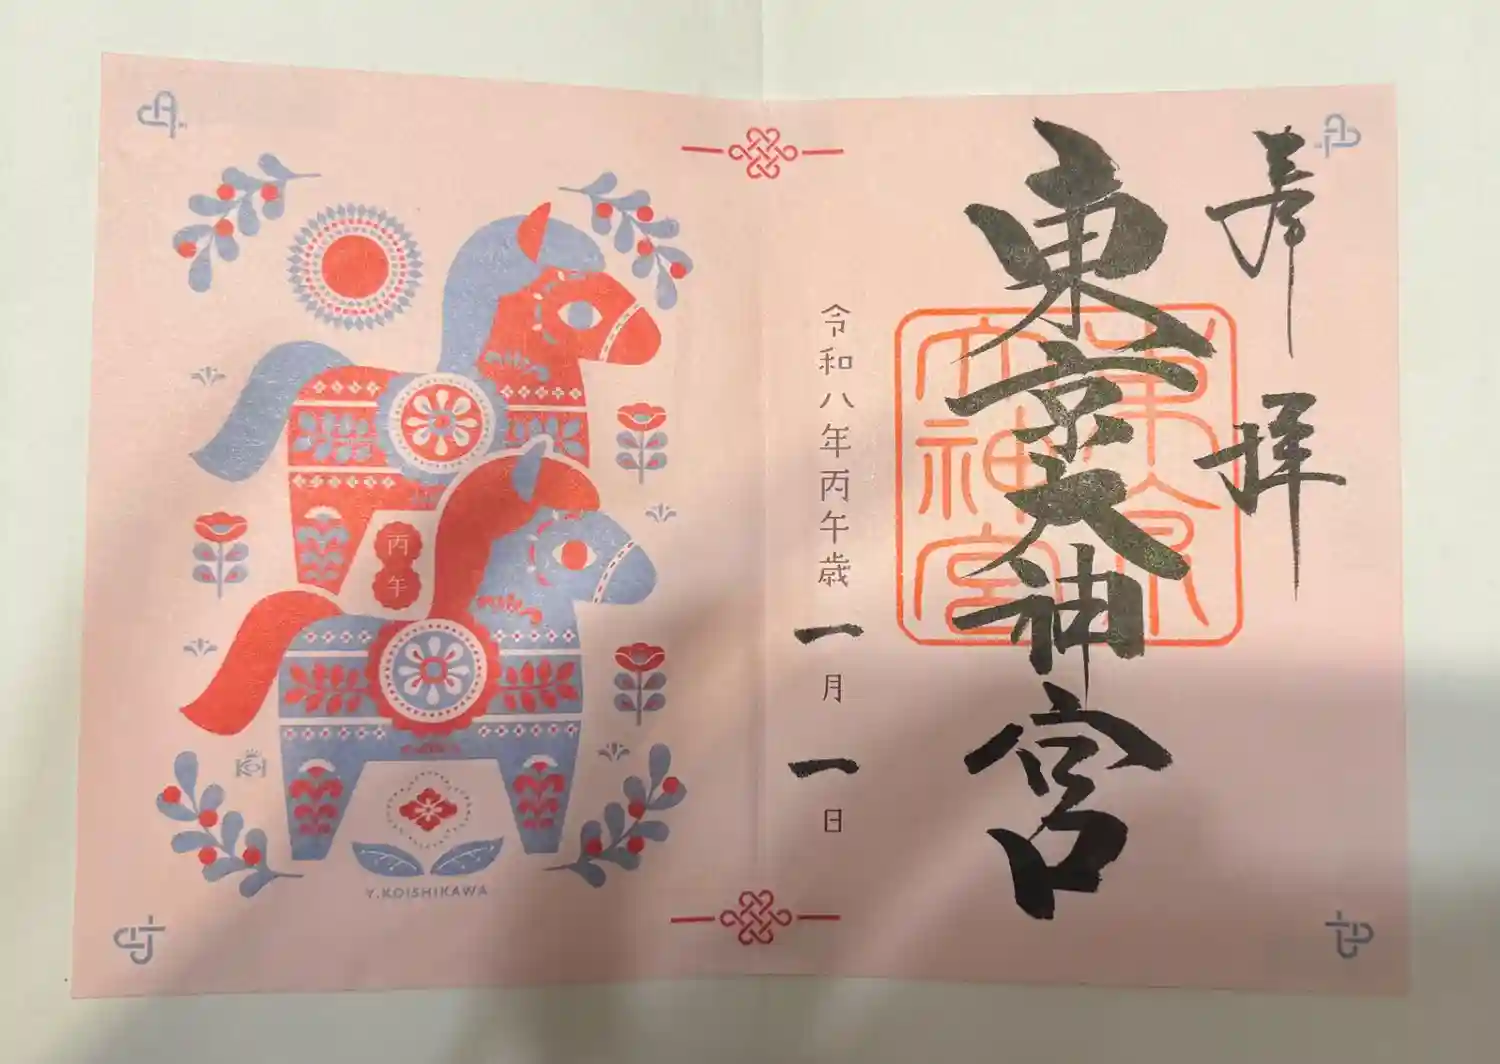 奉拝
東京大神宮
東京
大神宮
令和八年丙午歳一月一日
丙午
Y.KOISHIKAWA